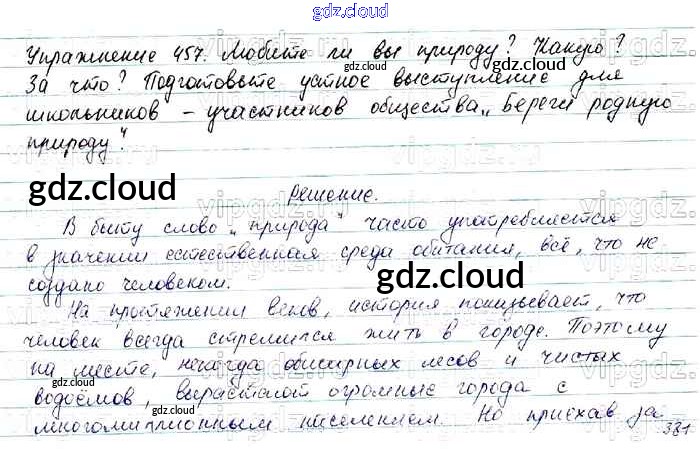 gdz.cloud
Упражнение 457. Любите ли вы природу? Какую?
За что? Подготовьте устное выступление для
школьников – участников общества „Береги родную
природу".
gdz.cloud
Решение.
В быту слово „природа" часто употребляется
в значении естественная среда обитания, всё, что не
создано человеком.
gdz.cloud
На протяжении веков, история показывает, что
человек всегда стремился жить в городе. Поэтому
на месте, некогда обширных лесов и чистых
водоёмов, вырастают огромные города с
многомиллионным населением. Но приехав за
gdz.cloud
gdz.cloud
gdz.cloud
381